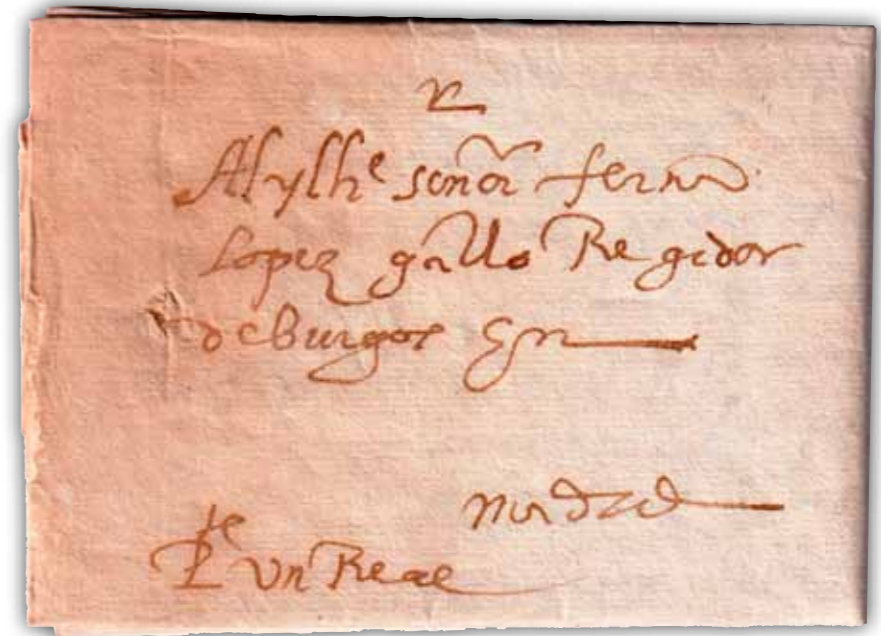 Al yllhe señor ferno
Lopez gallo Regidor
de Burgos En
madrid
pte Un Real